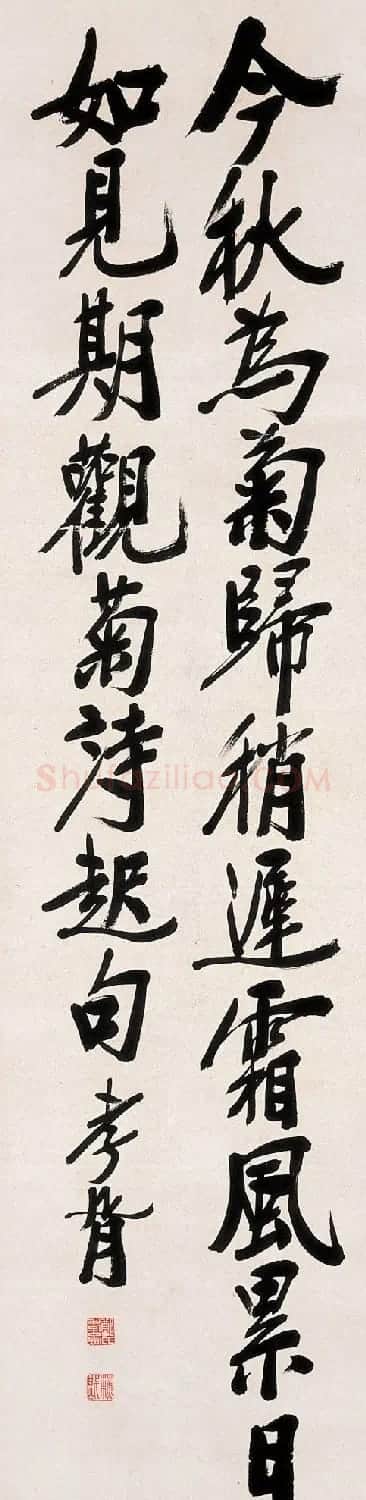 今秋為菊歸稍遲霜風累日
如見期觀菊詩起句孝胥
ShufaZiliao.COM